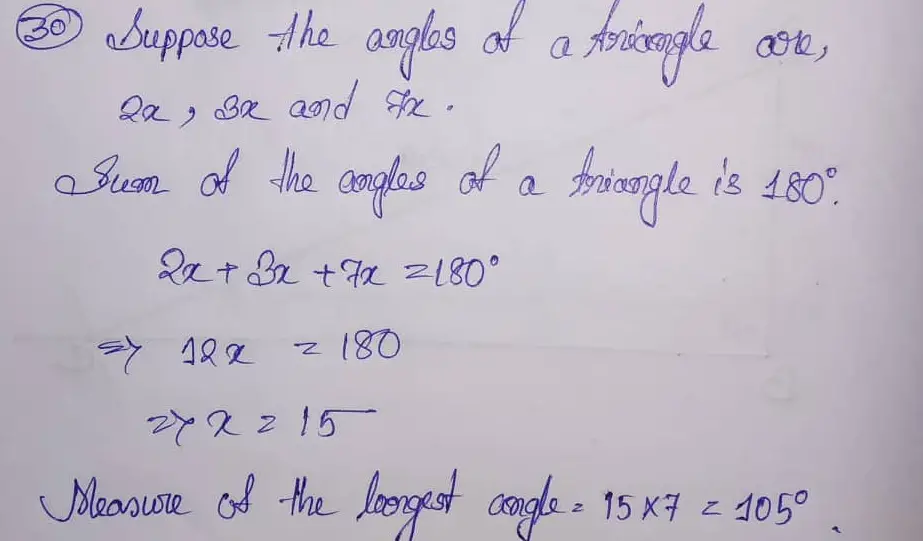 30 Suppose the angles of a triangle are,
2x, 3x and 7x.
Sum of the angles of a triangle is 180°.
2x + 3x + 7x = 180°
⇒ 12x = 180
⇒ x = 15
Measure of the longest angle = 15 × 7 = 105°.